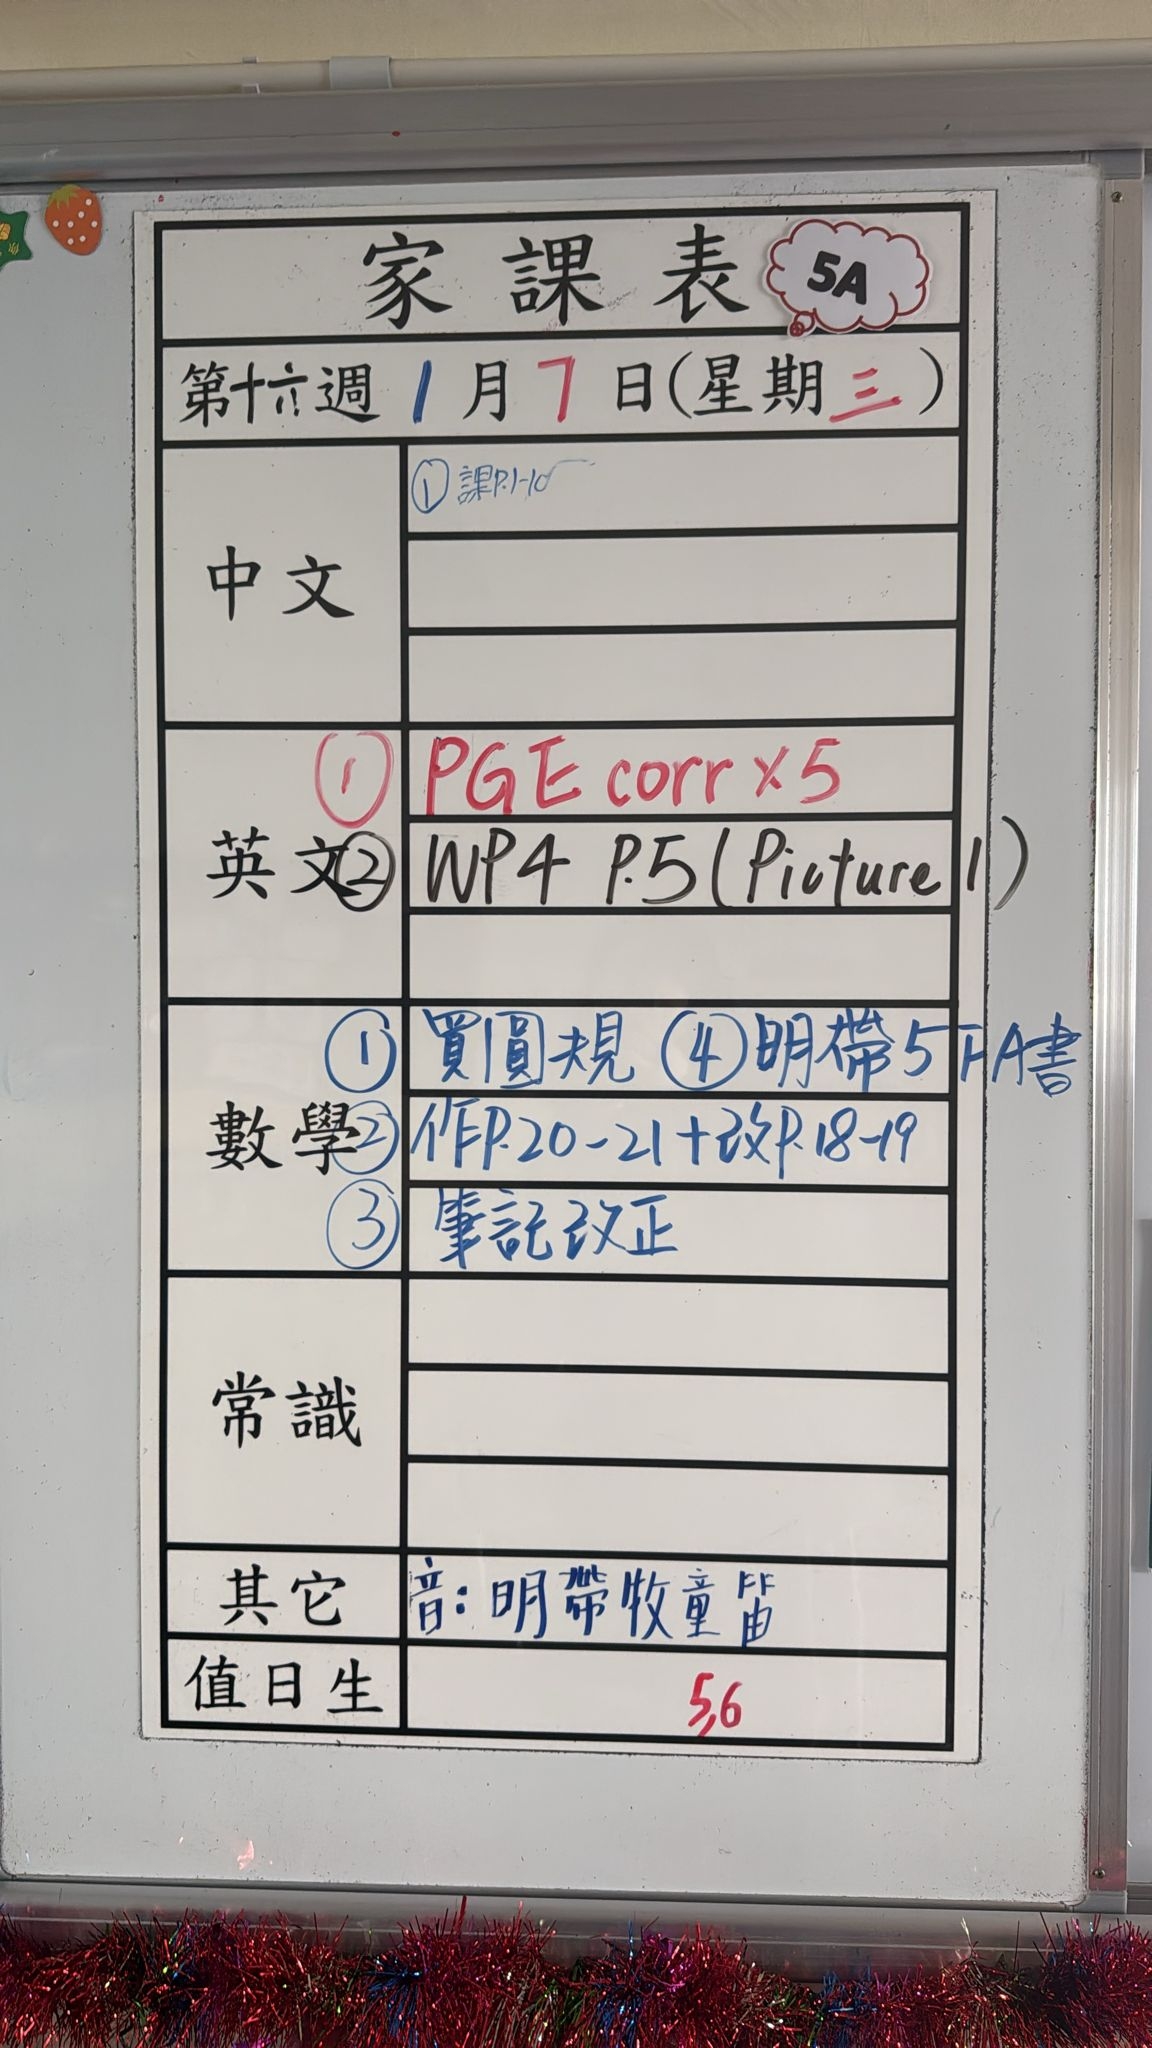 家課表 5A
第十六週 1月7日(星期三)
中文
① 課P.1-10
英文
① PGE corr x 5
② WP4 P.5 (Picture 1)
數學
① 買圓規 ④ 明帶5下A書
② 作P.20-21+改P.18-19
③ 筆記改正
常識
其它
音:明帶牧童笛
值日生
5,6